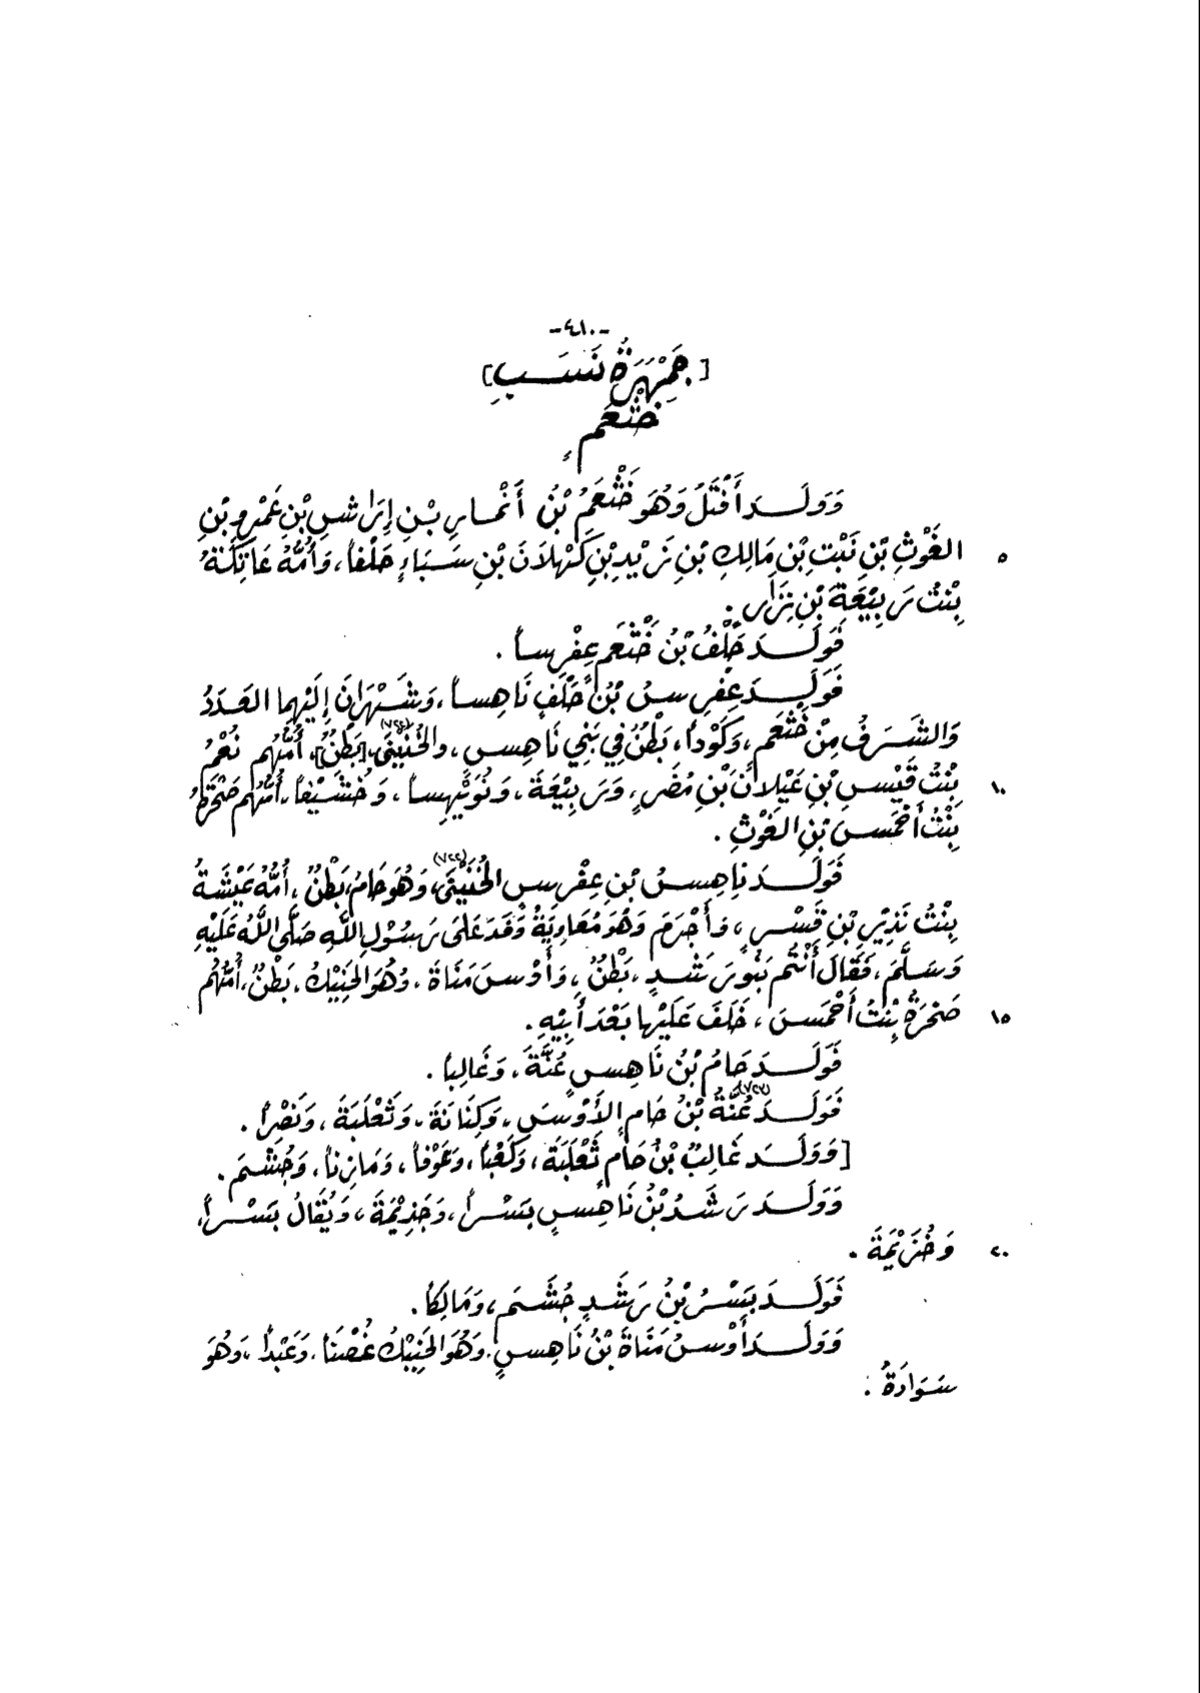 -٤١٠-
[جَمْهَرَةُ نَسَبِ]
خَثْعَمٍ
وَوَلَدَ أَفْتَلُ وَهُوَ خَثْعَمُ بْنُ أَنْمَارِ بْنِ إِرَاشِ بْنِ عَمْرِو بْنِ
٥ الغَوْثِ بْنِ نَبْتِ بْنِ مَالِكِ بْنِ زَيْدِ بْنِ كَهْلَانَ بْنِ سَبَاءٍ حَلْفاً، وَأُمُّهُ عَاتِكَةُ
بِنْتُ رَبِيْعَةَ بْنِ نِزَارٍ.
فَوَلَدَ حَلْفُ بْنُ خَثْعَمٍ عِفْرِساً.
فَوَلَدَ عِفْرِسُ بْنُ حَلْفٍ نَاهِساً، وَشَهْرَانَ إِلَيْهِمَا العَدَدُ
وَالشَّرَفُ مِنْ خَثْعَمٍ، وَكَوْداً، بَطْنٌ فِي بَنِي نَاهِسٍ، والخُنَيْنَى، (٧٢١) [بَطْنٌ]، أُمُّهُم نُعْمُ
١٠ بِنْتُ قَيْسِ بْنِ عَيْلَانَ بْنِ مُضَرٍ، وَرَبِيْعَةَ، وَنُوَيْهِساً، وَخُشَيْفاً، أُمُّهُم صَخْرَةُ
بِنْتُ أَحْمَسَ بْنِ الغَوْثِ.
فَوَلَدَ نَاهِسُ بْنِ عِفْرِسٍ الخُنَيْنَى، (٧٢٢) وَهُوَ حَامُ، بَطْنٌ، أُمُّهُ عَيْشَةُ
بِنْتُ نَذِيْرِ بْنِ قَسْرٍ، وَأَجْرَمَ وَهُوَ مُعَاوِيَةُ وَفَدَ عَلَى رَسُوْلِ اللَّهِ صَلَّى اللَّهُ عَلَيْهِ
وَسَلَّمَ، فَقَالَ أَنْتُم بَنُو رَشَدٍ، بَطْنٌ، وَأَوْسَ مَنَاةَ، وَهُوَ الحَنِيْكُ، بَطْنٌ، أُمُّهُم
١٥ صَخْرَةُ بِنْتُ أَحْمَسَ، خَلَفَ عَلَيْهَا بَعْدَ أَبِيْهِ.
فَوَلَدَ حَامُ بْنُ نَاهِسٍ عُنَّةَ، وَغَالِباً.
فَوَلَدَ عُنَّةُ (٧٢٣) بْنُ حَامٍ الأَوْسَ، وَكِنَانَةَ، وَثَعْلَبَةَ، وَنَصْراً.
[وَوَلَدَ غَالِبُ بْنُ حَامٍ ثَعْلَبَةَ، وَكَعْباً، وَعَوْفاً، وَمَازِناً، وَجُشَمَ.
وَوَلَدَ رَشَدُ بْنُ نَاهِسٍ بَسْراً، وَجَذِيْمَةَ، وَيُقَالُ بَسْراً،
٢٠ وَخُزَيْمَةَ.
فَوَلَدَ بَسْرُ بْنُ رَشَدٍ جُشَمَ، وَمَالِكاً.
وَوَلَدَ أَوْسُ مَنَاةَ بْنُ نَاهِسٍ، وَهُوَ الحَنِيْكُ غُصْناً، وَعَبْداً، وَهُوَ
سَوَادَةُ.